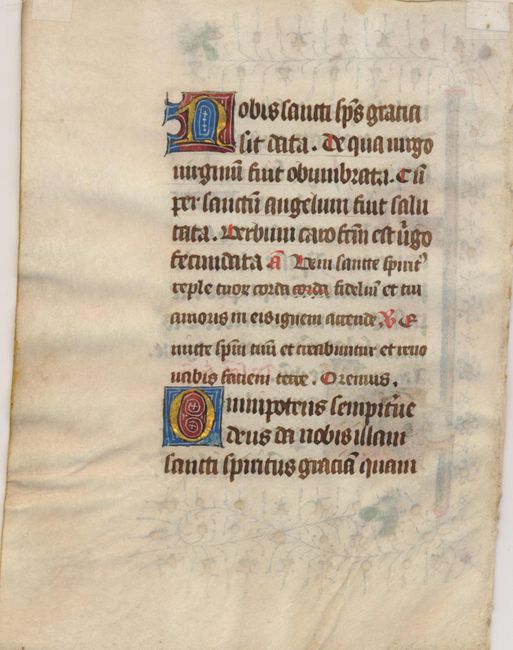 Nobis sancti sp̄s gratia
sit data. De qua uirgo
uirginū fuit obumbrata. Cū
per sanctū angelum fuit salu
tata. Verbum caro fc̄m est ūgo
fecundata a͞ Veni sancte spirit⁹
reple tuoꝝ corda corda fideliū et tui
amoris in eis ignem accende ℟ E
mitte sp̄m tuū et creabuntur et reno
uabis faciem terre. Oremus.
Omnipotens sempit̄ne
deus da nobis illam
sancti spiritus graciā quam